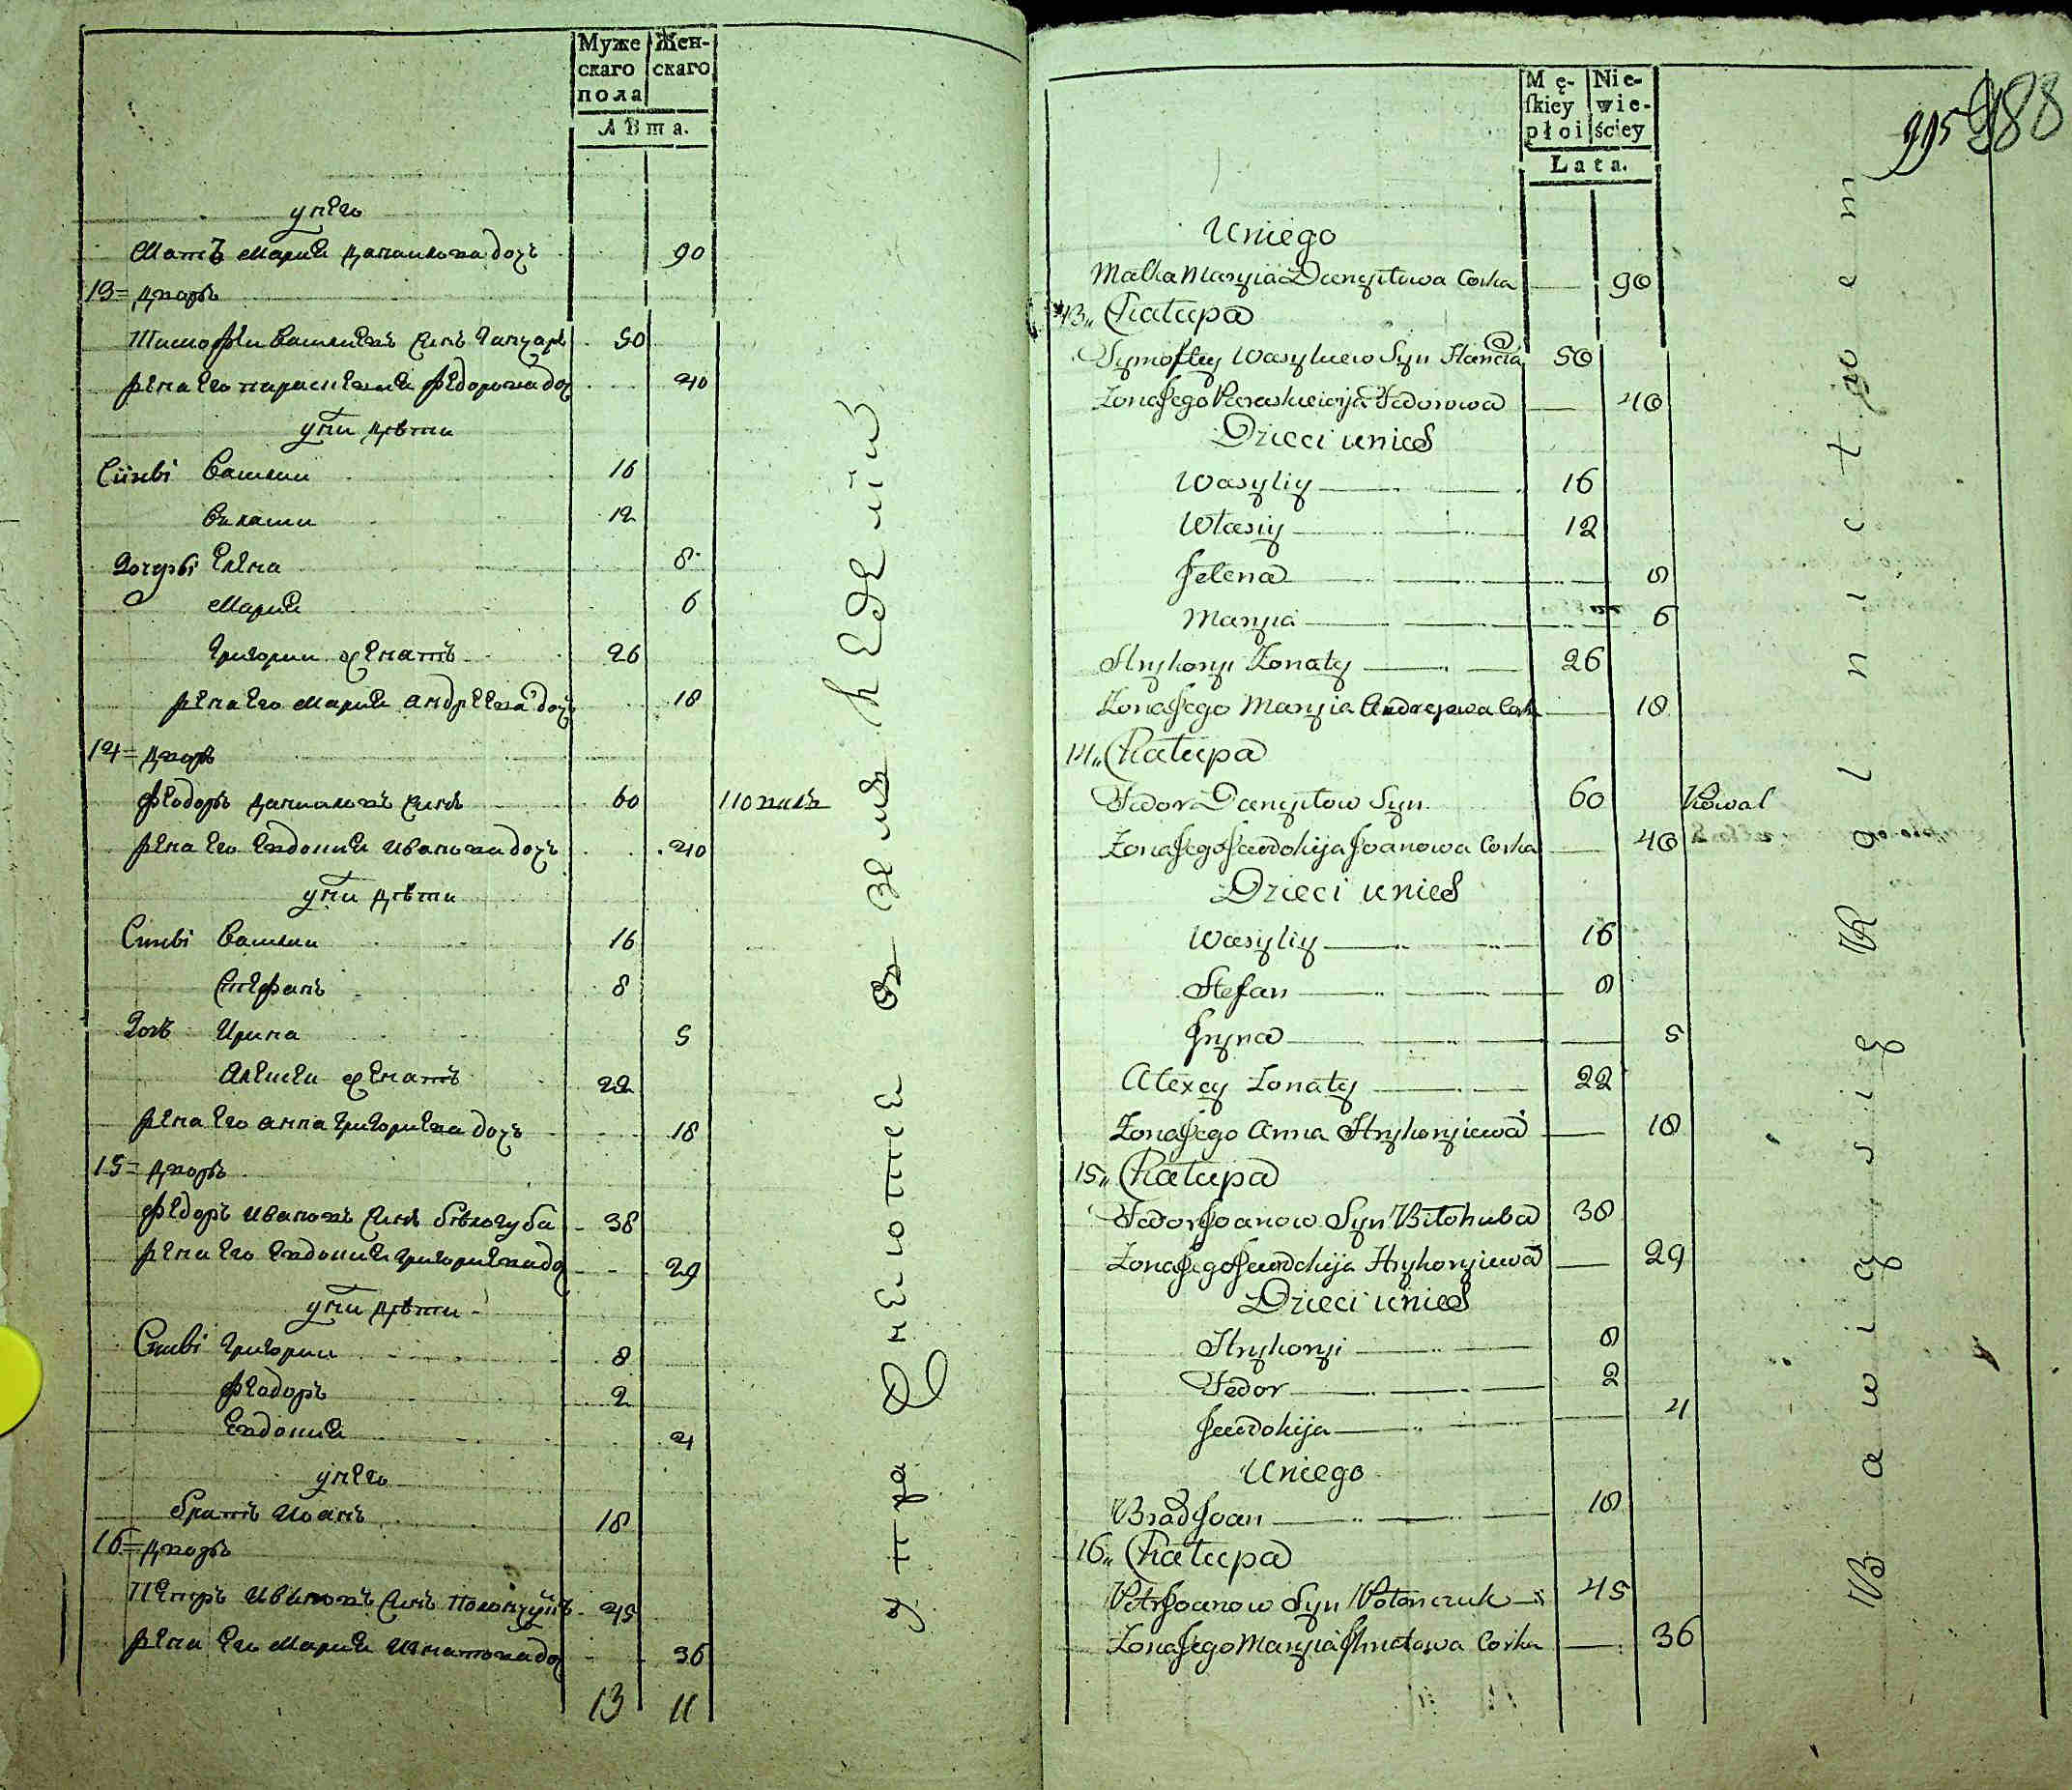 Муже
скаго
пола
Жен-
скаго
Лѣта.
у него
Мать Мария Данилова дочь 90
13= дворъ
Тимофеи Василиевъ синъ Ганчаръ 50
жена его параскевия Федорова до 40
у них дѣти
Сини Василии 16
Власии 12
Дочери Елена 8
Мария 6
Григории женатъ 26
жена его Мария Андреева дочь 18
14= дворъ
Феодоръ Данилов синъ 60
жена его Евдокия Иванова дочь 40
у них дѣти
Сини Василии 16
Стефанъ 8
Дочь Ирина 5
Алексеи женатъ 22
жена его анна Григориева дочь 18
15= дворъ
Федоръ Ивановъ синъ бѣлогуба 38
жена его Евдокия Григориева до 29
у них дѣти
Сини Григории 8
Феодоръ 2
Евдокия 4
у него
братъ Иоанъ 18
16= дворъ
Петръ Ивановъ синъ 45
жена его Мария Игнатова до 36
13 11
упражняются в земледелии
Mę-
ſkiey
płci
Nie-
wie-
ściey
Lata.
995 988
Uniego
Matka Maryia Danyłowa Corka 90
13„ Chałupa
Tymoftey Wasyluew Syn Hancia 50
Zona Jego Paraskewija Fedorowa 40
Dzieci unich
Wasyliy 16
Własiy 12
Jelena 8
Maryia 6
Hryhoryi Zonaty 26
Zona Jego Maryia Andrejewa Cork 18
14„ Chałupa
Fedor Danyłow Syn 60 Kowal
Zona Jego Jewdokija Joanowa Corka 40
Dzieci unich
Wasyliy 16
Stefan 8
Jryna 5
Alexey Zonaty 22
Zona Jego Anna Hryhoryiewa 18
15„ Chałupa
Fedor Joanow Syn Biłohuba 38
Zona Jego Jewdokija Hryhoryiewa 29
Dzieci unich
Hryhoryi 8
Fedor 2
Jewdokija 4
Uniego
Brad Joan 18
16„ Chałupa
Petr Joanow Syn Połonczuk 45
Zona Jego Maryia Jhnatowa Corka 36
Bawią się Rolnictwem